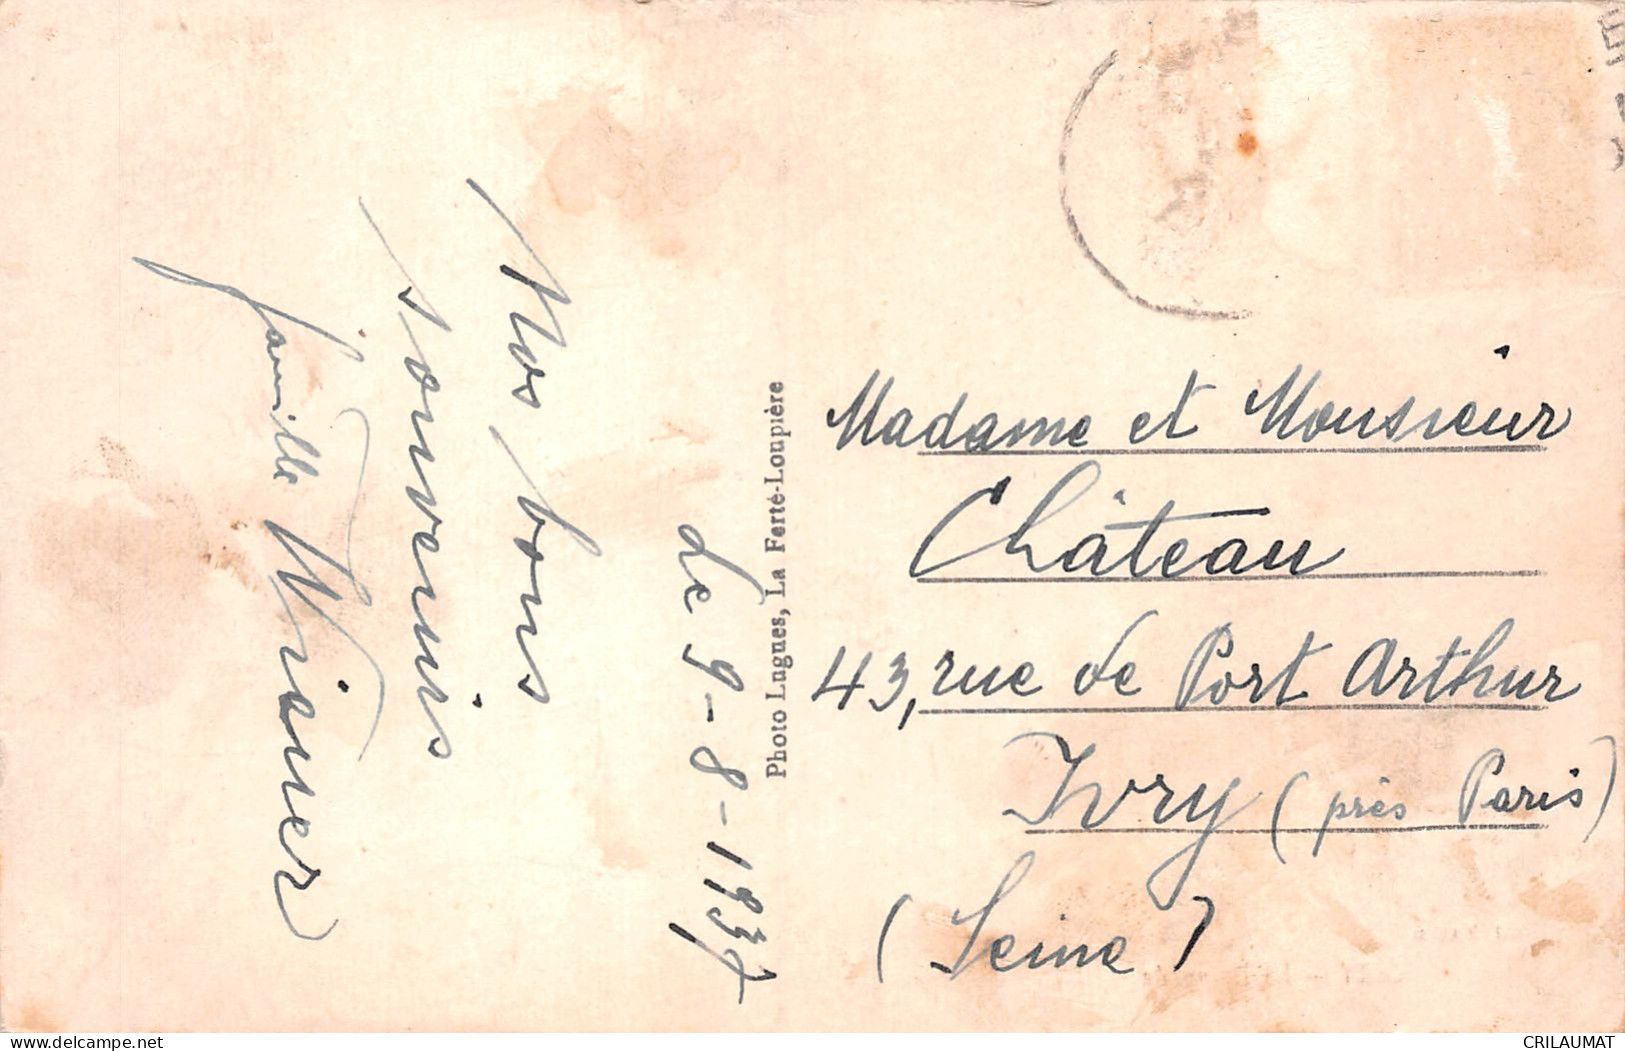 Le 9-8-1937
Nos bons
souvenirs
famille
Photo Lugues, La Ferté-Loupière
Madame et Monsieur
Château
43, rue de Port Arthur
Ivry (près Paris)
(Seine)
www.delcampe.net
CRILAUMAT